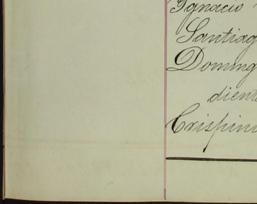 Ignacio
Santiag
Doming
dient
Crispin